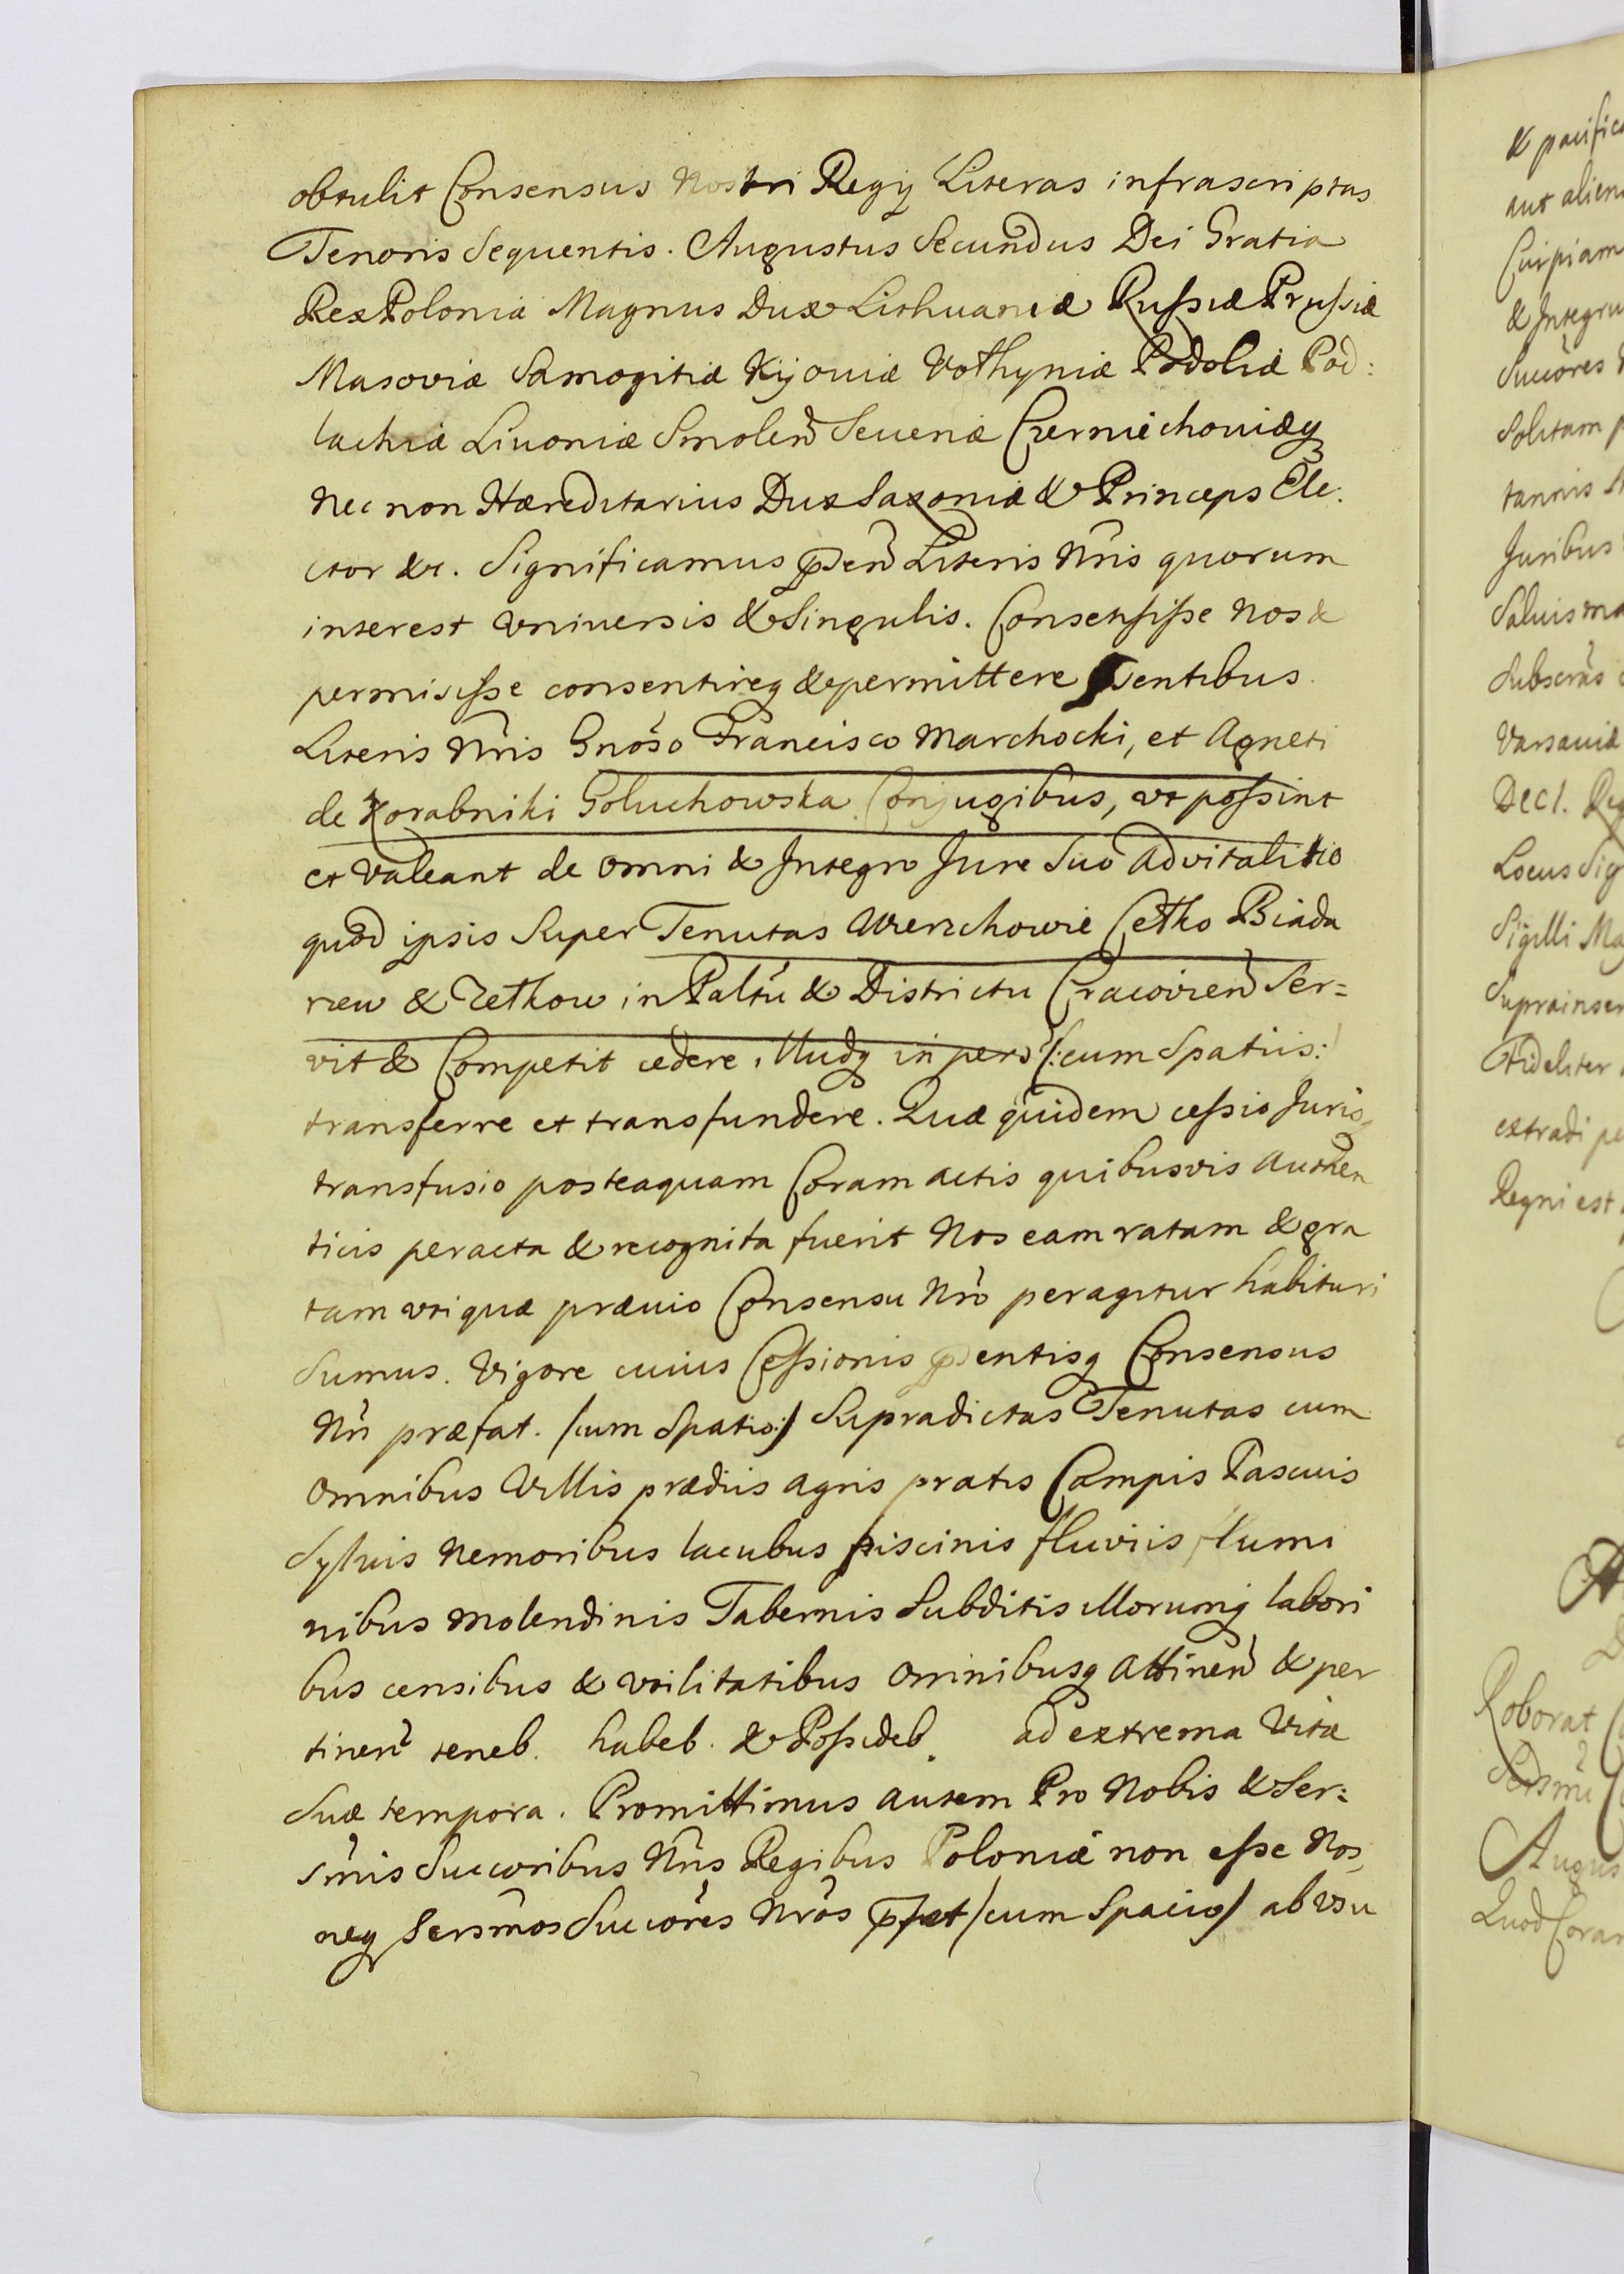 obtulit Consensus Nostri Regij Literas infrascriptas
Tenoris Sequentis. Augustus Secundus Dei Gratia
Rex Poloniæ Magnus Dux Lithuaniæ Russiæ Prussiæ
Masoviæ Samogitiæ Kijoviæ Volhyniæ Podoliæ Pod:
lachiæ Livoniæ Smolen Severiæ Czerniechoviæq
Nec non Hæreditarius Dux Saxoniæ & Princeps Ele:
ctor &c. Significamus pñten Literis Nris quorum
interest Universis & Singulis. Consensisse Nos &
permisisse consentireq & permittere pñsentibus
Literis Nris Gnoso Francisco Marchocki, et Agneti
de Korabniki Goluchowska Conjugibus, ut possint
et valeant de omni & Integro Jure Suo Advitalitio
quod ipsis Super Tenutas Wierzchowie Cetho Biada
rzew & Zethow in Paltu & Districtu Cracovien Ser=
vit & Competit cedere, illudq in pers (: cum Spatiis:)
transferre et transfundere. Quæ quidem cessio Juris
transfusio posteaquam Coram actis quibusvis Authen
ticis peracta & recognita fuerit Nos eam ratam & gra
tam uti quæ prævio Consensu Nro peragitur habituri
Sumus. Vigore cuius Cessionis pñtentisq Consensus
Nri præfat. /cum Spatio:/ Supradictas Tenutas cum
Omnibus Villis prædiis agris pratis Campis Pascuis
Sylvis Nemoribus lacubus piscinis fluviis flumi
nibus Molendinis Tabernis Subditis illorumq labori
bus censibus & utilitatibus Omnibusq Attinen & per
tinen teneb. habeb. & Possideb. ad extrema Vitæ
Suæ tempora. Promittimus autem Pro Nobis & Ser=
smis Succoribus Nris Regibus Poloniæ non esse Nos,
neq Sersmos Succores Nros pfat /cum Spacio/ ab usu
& pacifica
aut alien
Cuipiam
& Integru
Succores
Solitam
tannis
Juribus
Salvis ma
Subscras
Varsaviæ
DCCI. Reg
Locus Sig
Sigilli Ma
Suprainser
Fideliter
extradi pe
Regni est
Roborat
Sersmi
Augus
Quod Coram